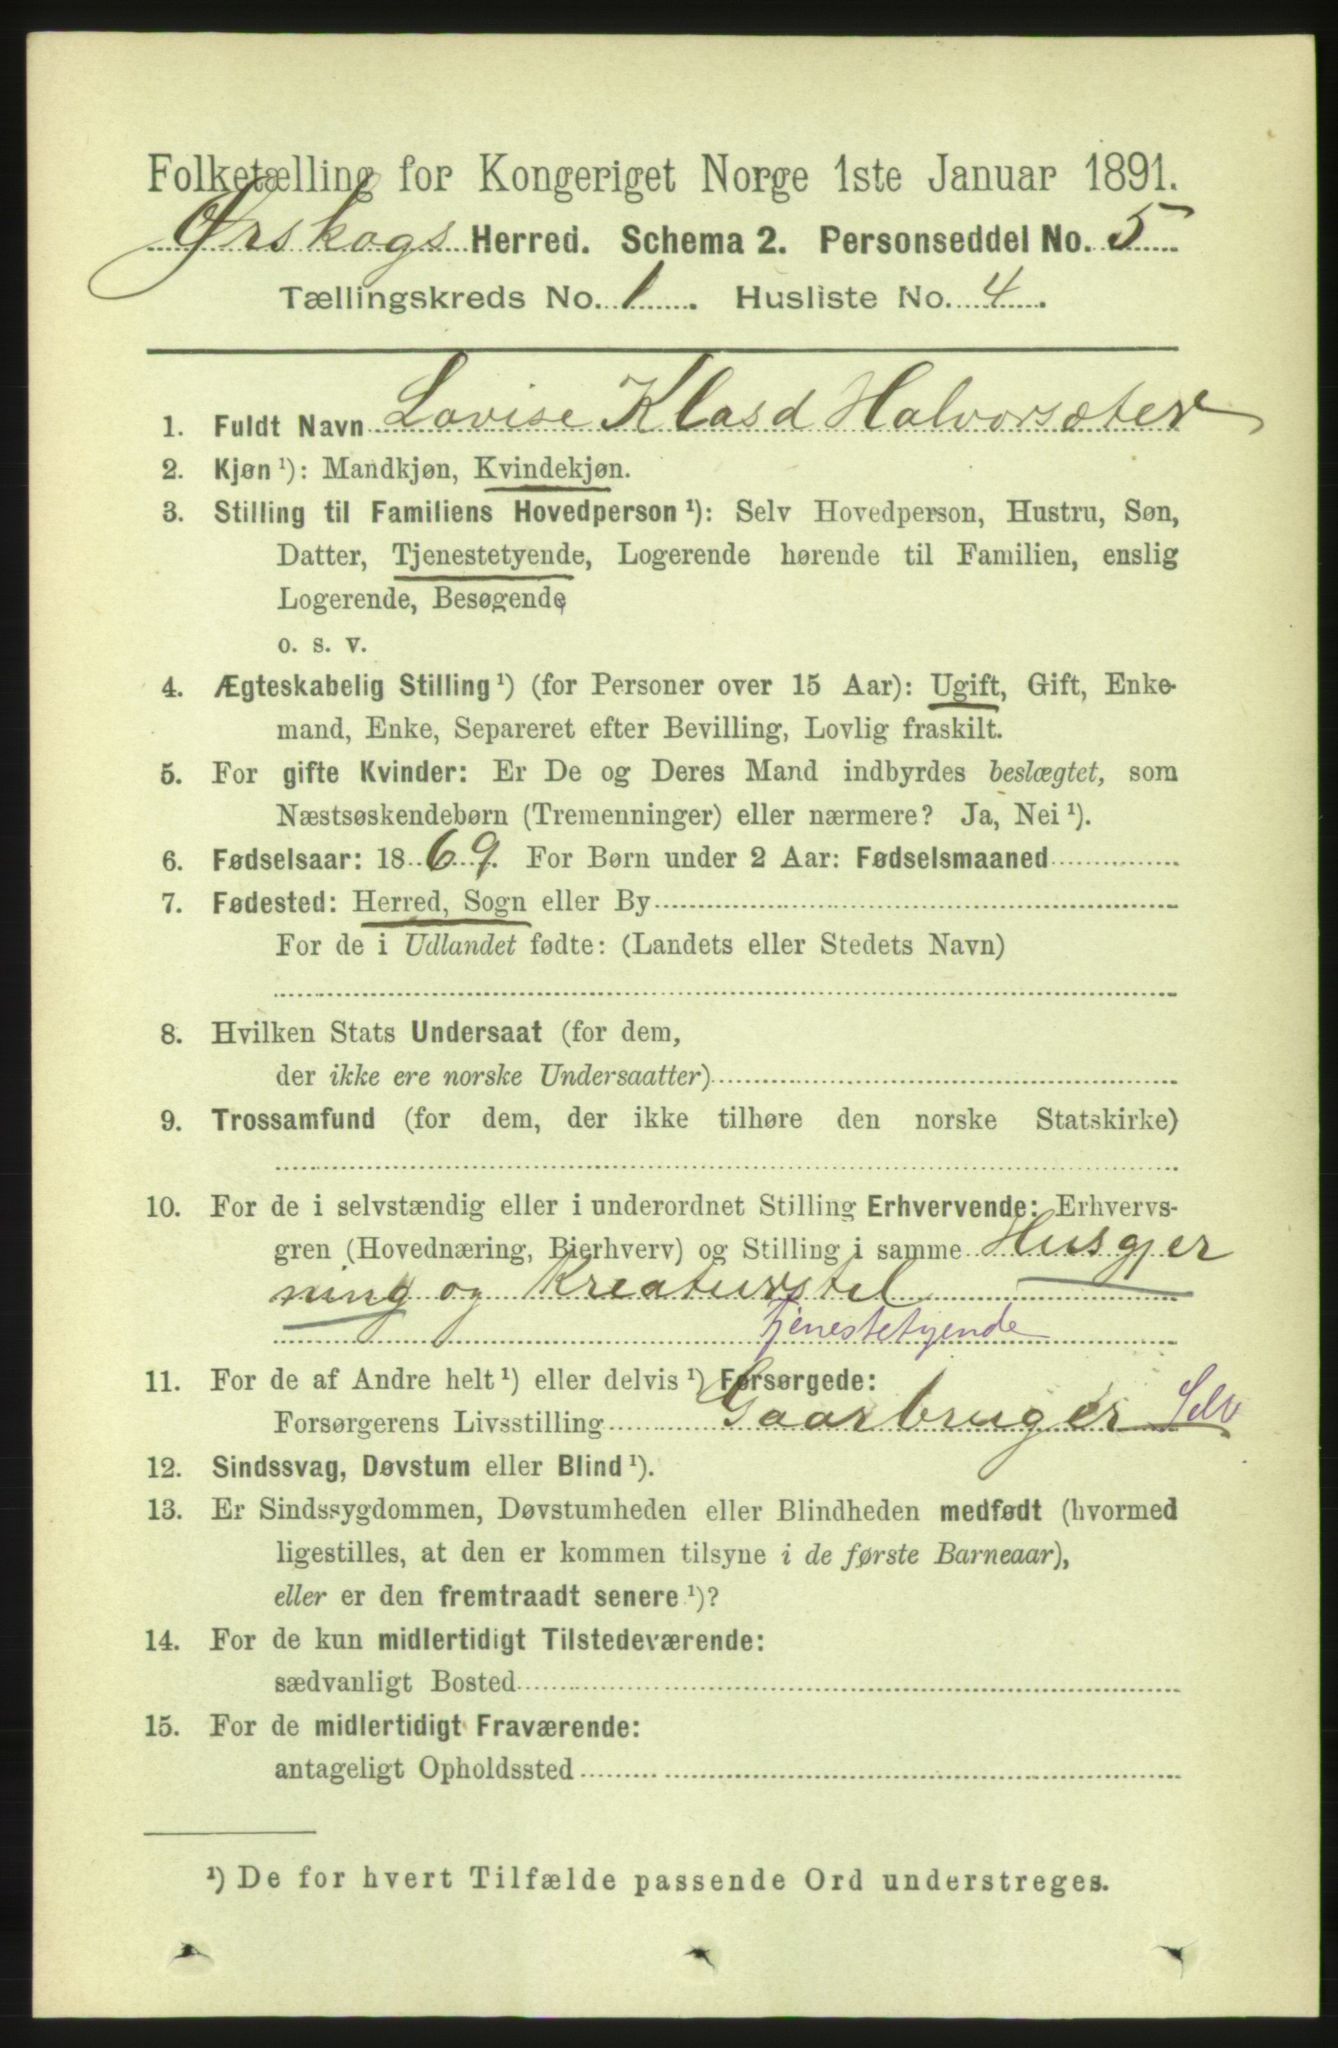 Folketælling for Kongeriget Norge 1ste Januar 1891.
Ørskogs Herred. Schema 2. Personseddel No. 5
Tællingskreds No. 1. Husliste No. 4.
1. Fuldt Navn Lovise Klasd Halvorsæter
2. Kjøn ¹): Mandkjøn, Kvindekjøn.
3. Stilling til Familiens Hovedperson ¹): Selv Hovedperson, Hustru, Søn,
Datter, Tjenestetyende, Logerende hørende til Familien, enslig
Logerende, Besøgende
o. s. v.
4. Ægteskabelig Stilling ¹) (for Personer over 15 Aar): Ugift, Gift, Enke-
mand, Enke, Separeret efter Bevilling, Lovlig fraskilt.
5. For gifte Kvinder: Er De og Deres Mand indbyrdes beslægtet, som
Næstsøskendebørn (Tremenninger) eller nærmere? Ja, Nei ¹).
6. Fødselsaar: 1869. For Børn under 2 Aar: Fødselsmaaned
7. Fødested: Herred, Sogn eller By
For de i Udlandet fødte: (Landets eller Stedets Navn)
8. Hvilken Stats Undersaat (for dem,
der ikke ere norske Undersaatter)
9. Trossamfund (for dem, der ikke tilhøre den norske Statskirke)
10. For de i selvstændig eller i underordnet Stilling Erhvervende: Erhvervs-
gren (Hovednæring, Bierhverv) og Stilling i samme Husgjer
ning og Kreaturstel
Tjenestetyende
11. For de af Andre helt ¹) eller delvis ¹) Forsørgede:
Forsørgerens Livsstilling Gaarbruger Selv
12. Sindssvag, Døvstum eller Blind ¹).
13. Er Sindssygdommen, Døvstumheden eller Blindheden medfødt (hvormed
ligestilles, at den er kommen tilsyne i de første Barneaar),
eller er den fremtraadt senere ¹)?
14. For de kun midlertidigt Tilstedeværende:
sædvanligt Bosted
15. For de midlertidigt Fraværende:
antageligt Opholdssted
¹) De for hvert Tilfælde passende Ord understreges.